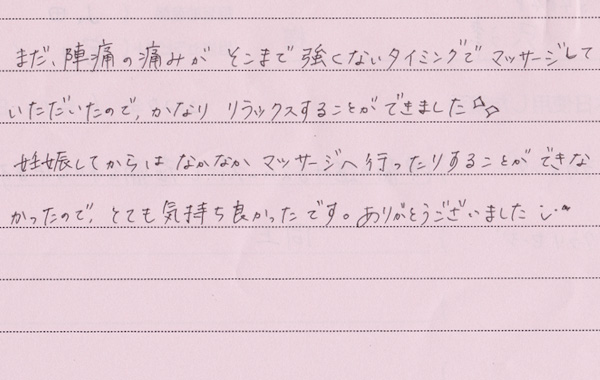 まだ、陣痛の痛みが そこまで強くないタイミングで マッサージして
いただいたので、かなり リラックスすることができました☆☆
妊娠してからは なかなか マッサージへ行ったりすることができな
かったので、とても気持ち良かったです。ありがとうございました